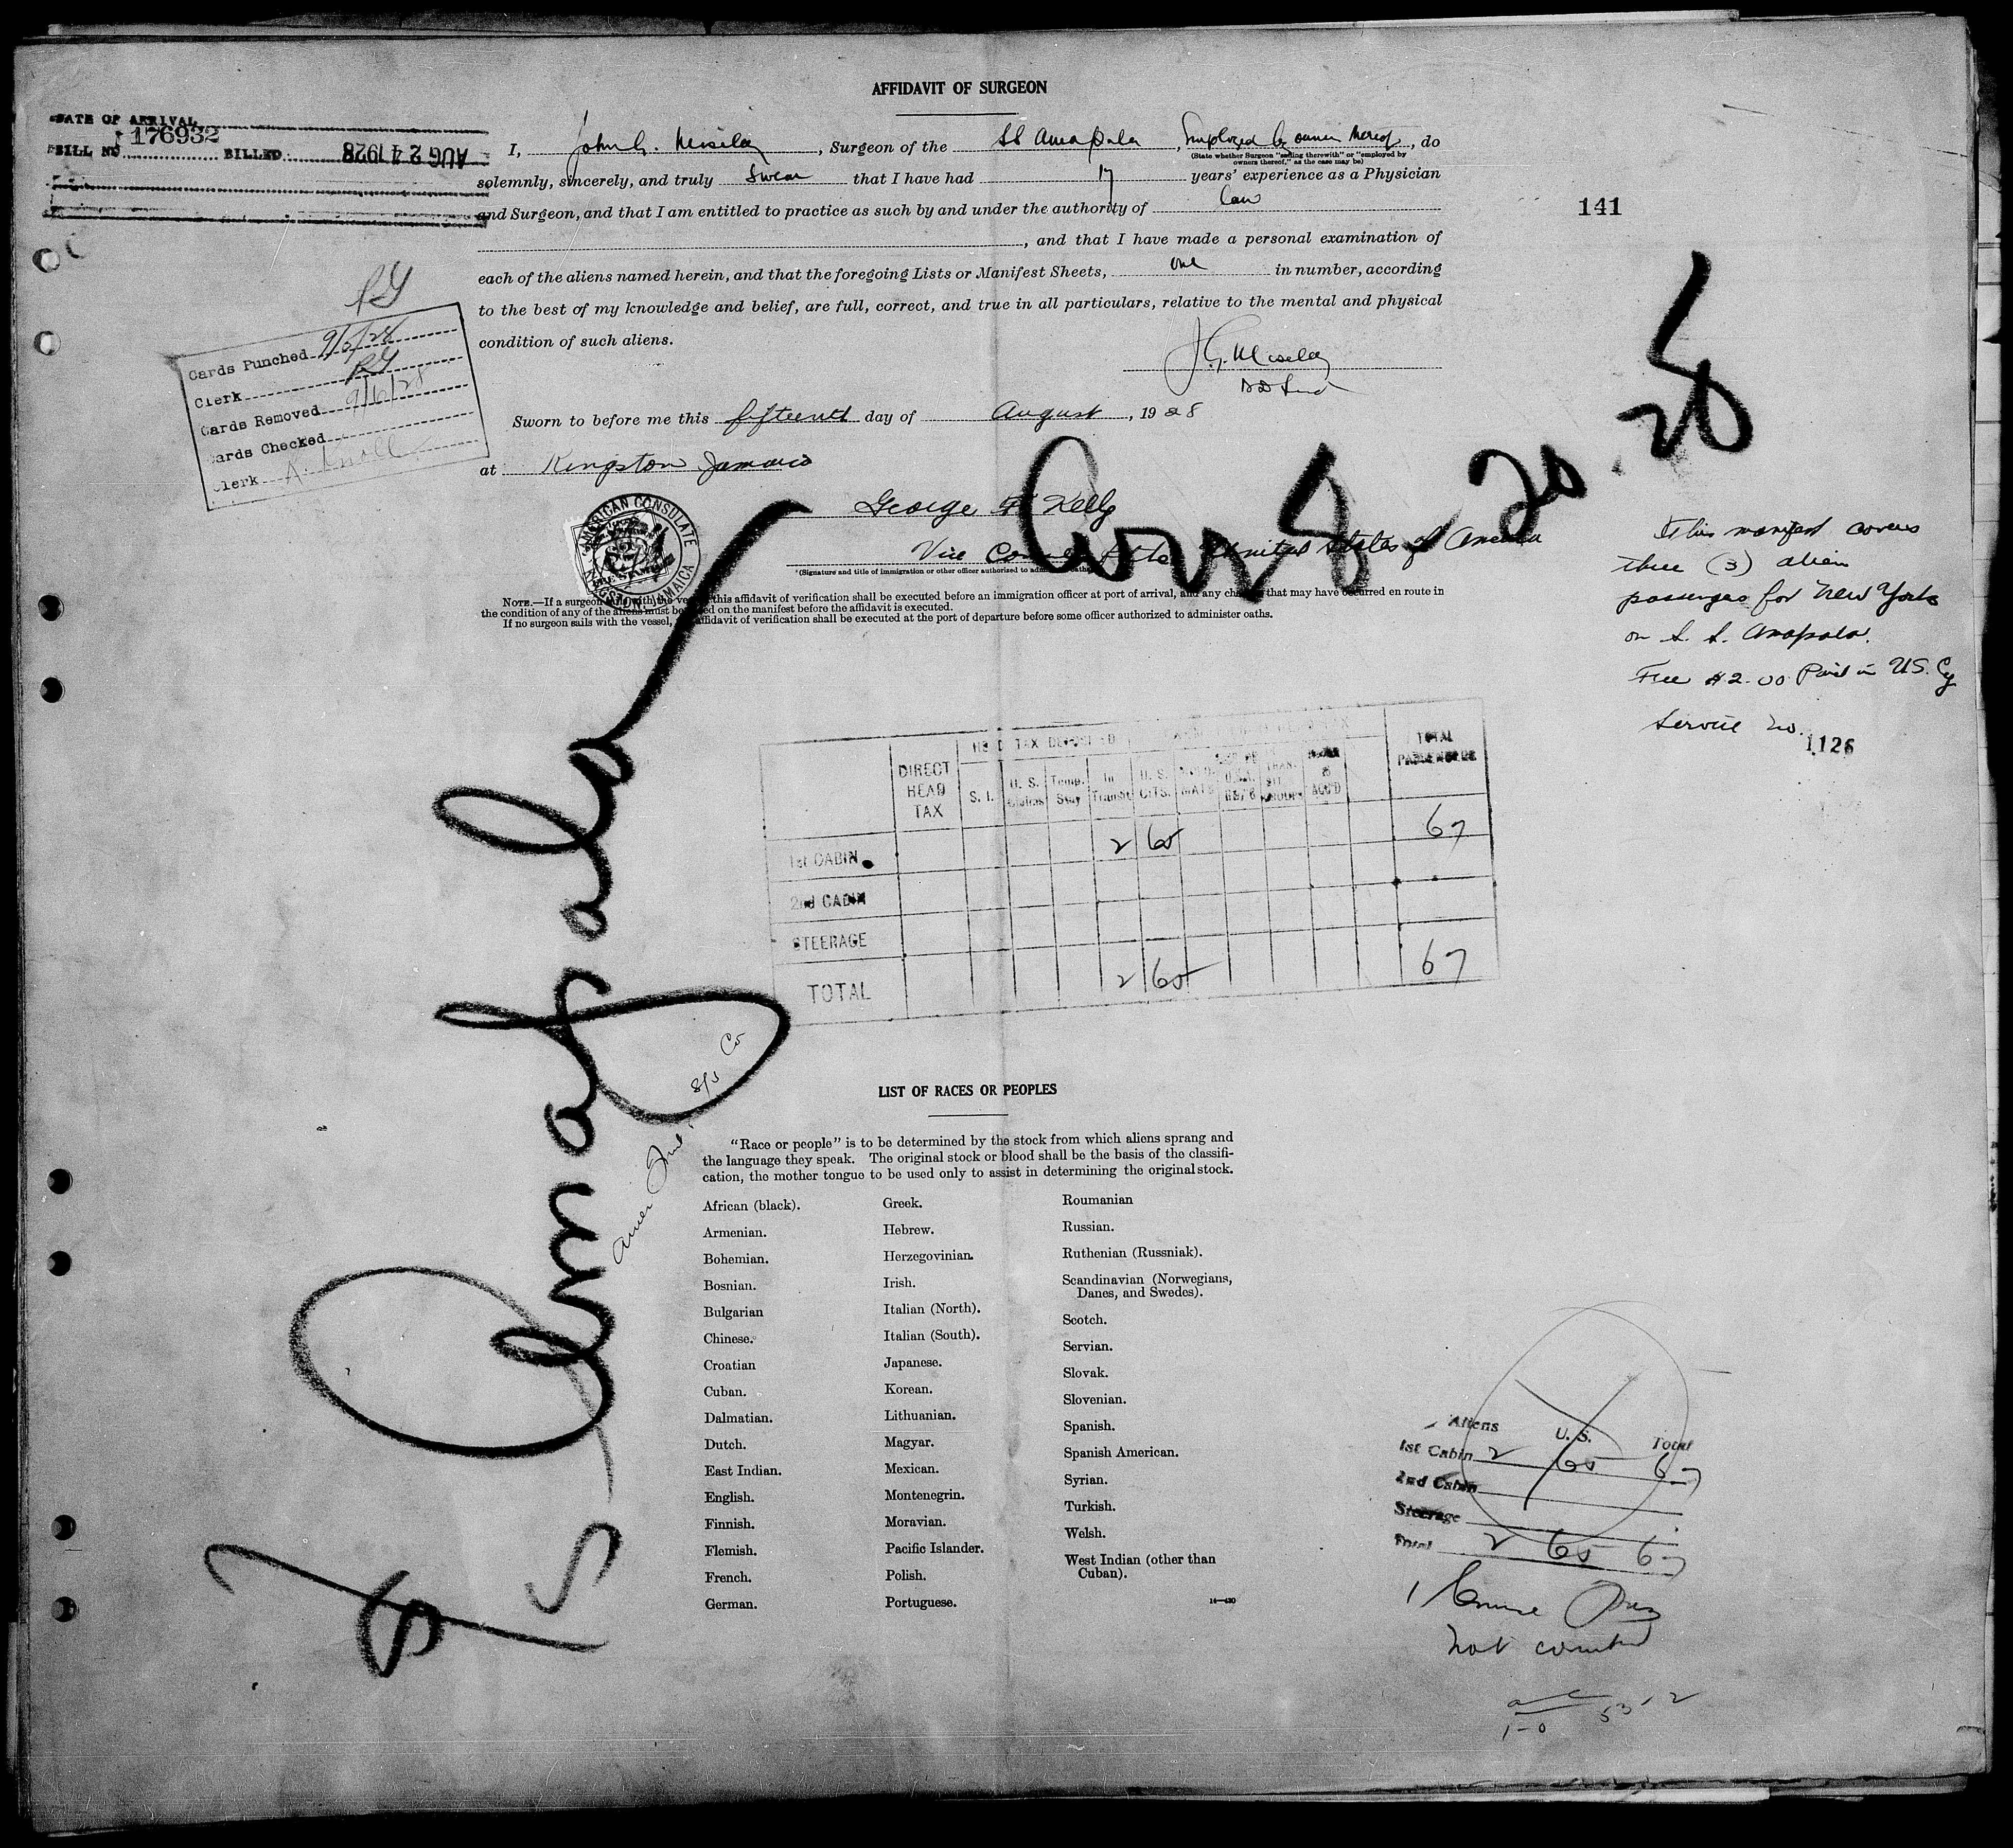 AFFIDAVIT OF SURGEON
DATE OF ARRIVAL
176932
BILL NO BILLED AUG 24 1928
I, John G. , Surgeon of the SS Amapala, Employed by owner thereof, do
(State whether Surgeon "sailing therewith" or "employed by
owners thereof," as the case may be)
solemnly, sincerely, and truly Swear that I have had 17 years' experience as a Physician
and Surgeon, and that I am entitled to practice as such by and under the authority of law
141
, and that I have made a personal examination of
each of the aliens named herein, and that the foregoing Lists or Manifest Sheets, one in number, according
to the best of my knowledge and belief, are full, correct, and true in all particulars, relative to the mental and physical
condition of such aliens.
Cards Punched 9/5/28
Clerk
Cards Removed 9/6/28
Cards Checked
Clerk A. Knoll
Sworn to before me this fifteenth day of August, 1928
at Kingston Jamaica
George F Kelly
Vice Consul of the United States of America
*(Signature and title of immigration or other officer authorized to administer oaths)
AMERICAN CONSULATE
KINGSTON, JAMAICA
NOTE.—If a surgeon sails with the vessel, this affidavit of verification shall be executed before an immigration officer at port of arrival, and any changes that may have occurred en route in
the condition of any of the aliens must be noted on the manifest before the affidavit is executed.
If no surgeon sails with the vessel, affidavit of verification shall be executed at the port of departure before some officer authorized to administer oaths.
Aug. 20.28
This manifest covers
three (3) alien
passengers for New York
on S. S. Amapala.
Fee $2.00 Paid in US. Cy
Service No.
1126
SS Amapala
Amer Fruit S/S Co
HEAD TAX DEPOSITED
DIRECT HEAD TAX S. I. U. S. Citizens Temp. Stay In Transit U. S. CITS. TOTAL PASSENGERS
1st CABIN 2 65 67
2nd CABIN
STEERAGE
TOTAL 2 65 67
LIST OF RACES OR PEOPLES
"Race or people" is to be determined by the stock from which aliens sprang and
the language they speak. The original stock or blood shall be the basis of the classifi-
cation, the mother tongue to be used only to assist in determining the original stock.
African (black).
Armenian.
Bohemian.
Bosnian.
Bulgarian
Chinese.
Croatian
Cuban.
Dalmatian.
Dutch.
East Indian.
English.
Finnish.
Flemish.
French.
German.
Greek.
Hebrew.
Herzegovinian.
Irish.
Italian (North).
Italian (South).
Japanese.
Korean.
Lithuanian.
Magyar.
Mexican.
Montenegrin.
Moravian.
Pacific Islander.
Polish.
Portuguese.
Roumanian
Russian.
Ruthenian (Russniak).
Scandinavian (Norwegians,
Danes, and Swedes).
Scotch.
Servian.
Slovak.
Slovenian.
Spanish.
Spanish American.
Syrian.
Turkish.
Welsh.
West Indian (other than
Cuban).
Aliens U. S. Total
1st Cabin 2 65 67
2nd Cabin
Steerage
Total 2 65 67
1 Cruise
not counted
1-0 53-2